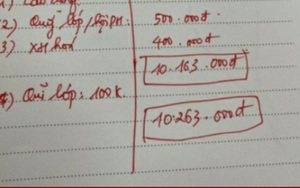 2) Quỹ lớp/hội PH: 500.000đ
3) XH hoá 400.000đ
10.163.000đ
4) Quĩ lớp: 100k.
10.263.000đ